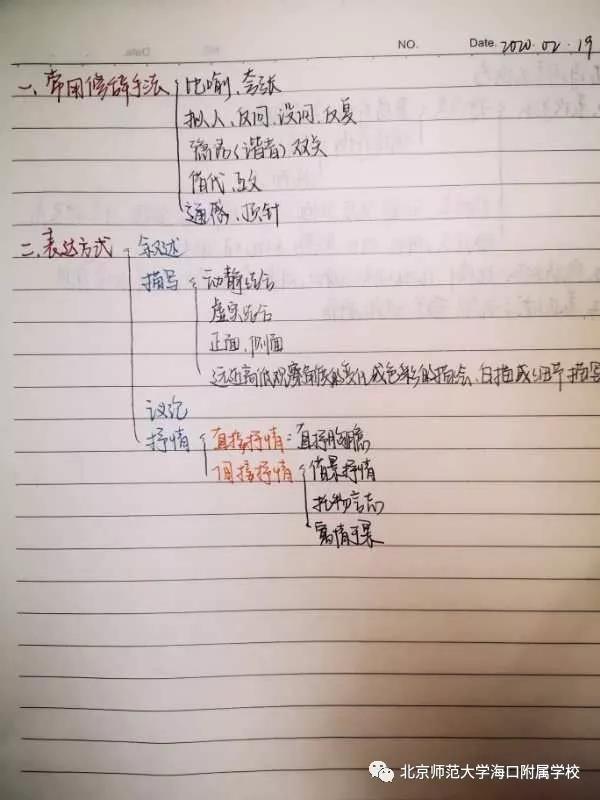 NO.
Date. 2020.02.19
一、常用修辞手法 比喻、夸张
拟人、反问、设问、反复
(谐音)双关
借代、互文
通感、顶针
二、表达方式 叙述
描写 动静结合
虚实结合
正面、侧面
远近高低观察角度的变化或色彩的描绘、白描或细节描写
议论
抒情 直接抒情：直抒胸臆
间接抒情 借景抒情
托物言志
寓情于景
北京师范大学海口附属学校